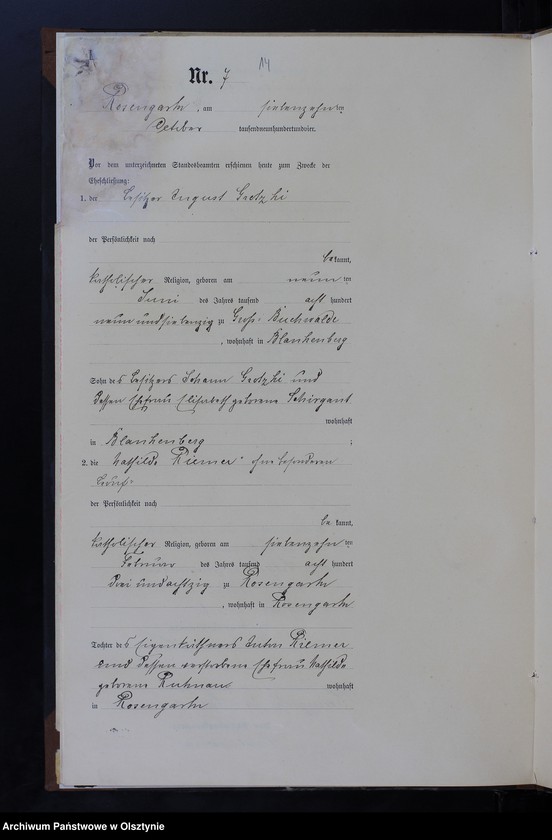 14
Nr. 7
Rosengarth, am siebenzehn ten
October tausendneunhundertundvier.
Vor dem unterzeichneten Standesbeamten erschienen heute zum Zwecke der
Eheschließung:
1. der Besitzer August Grotzki
der Persönlichkeit nach
be kannt,
katholischer Religion, geboren am neun ten
Juni des Jahres tausend acht hundert
neun und siebenzig zu Groß-Buchwalde
, wohnhaft in Blankenberg
Sohn des Besitzers Johann Grotzki und
dessen Ehefrau Elisabeth geborene Schirgant
wohnhaft
in Blankenberg ;
2. die Mathilde Riemer ohne besonderen
Beruf
der Persönlichkeit nach
be kannt,
katholischer Religion, geboren am siebenzehn ten
Februar des Jahres tausend acht hundert
drei und achtzig zu Rosengarth
, wohnhaft in Rosengarth
Tochter des Eigenkäthners Anton Riemer
und dessen verstorbene Ehefrau Mathilde
geborene Ruhnau wohnhaft
in Rosengarth
Archiwum Państwowe w Olsztynie